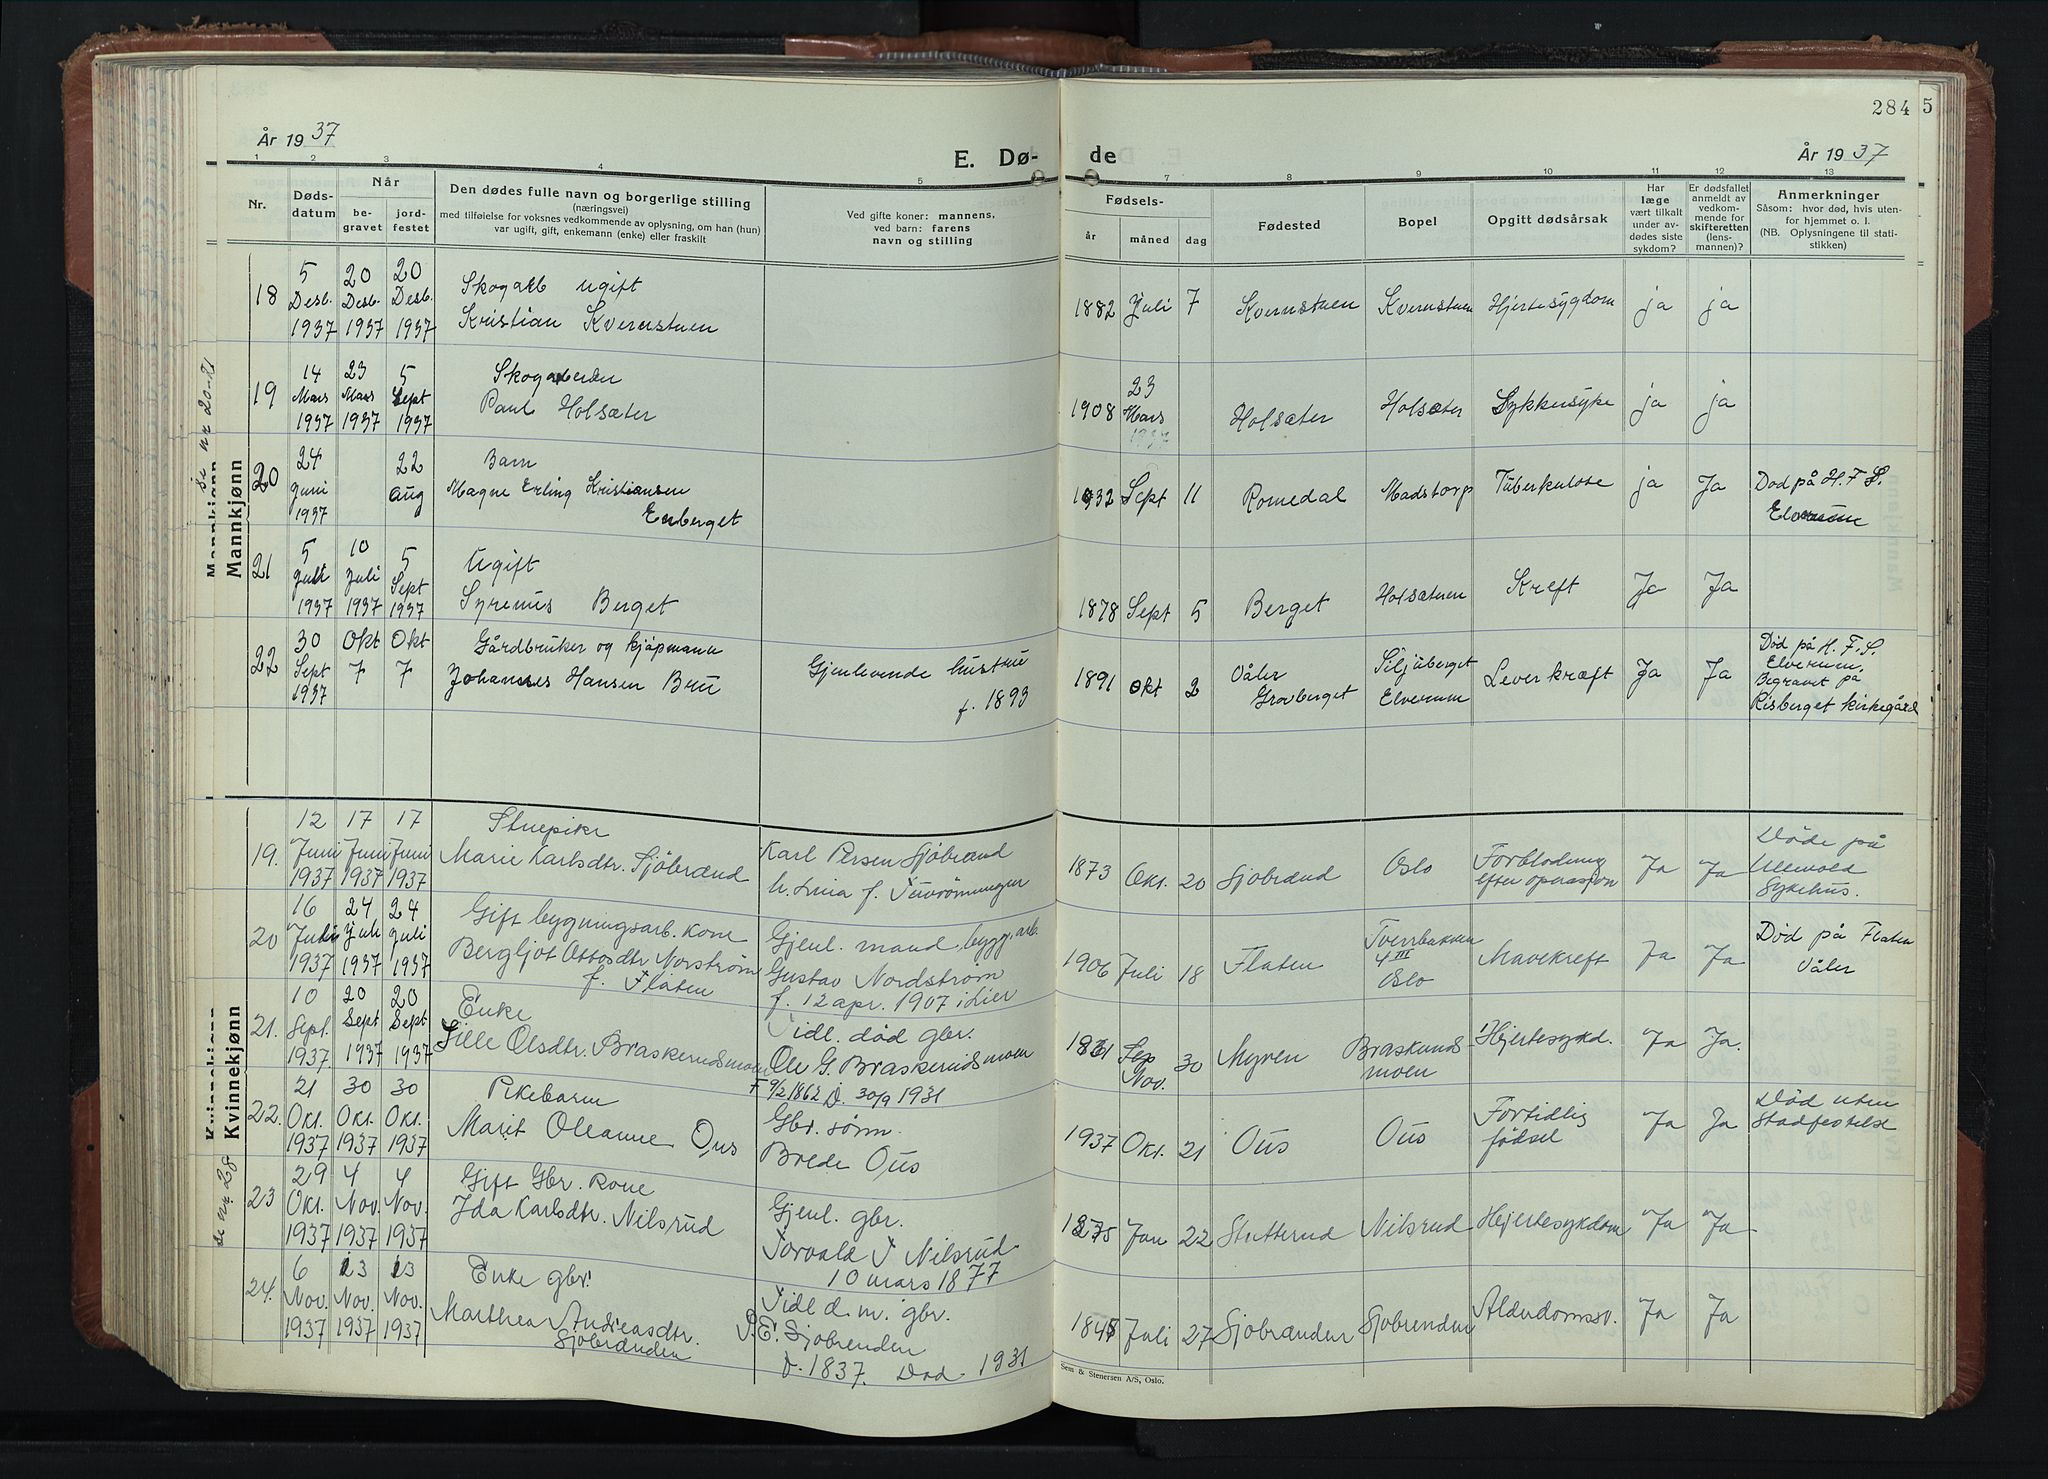 284 5
År 1937
E. Dø-
de
År 1937
1 2 3 4 5 7 8 9 10 11 12 13
Nr.
Døds-
datum
Når
be-
gravet
jord-
festet
Den dødes fulle navn og borgerlige stilling
(næringsvei)
med tilføielse for voksnes vedkommende av oplysning, om han (hun)
var ugift, gift, enkemann (enke) eller fraskilt
Ved gifte koner: mannens,
ved barn: farens
navn og stilling
Fødsels-
år måned dag
Fødested
Bopel
Opgitt dødsårsak
Har
læge
vært tilkalt
under av-
dødes siste
sykdom?
Er dødsfallet
anmeldt av
vedkom-
mende for
skifteretten
(lens-
mannen)?
Anmerkninger
Såsom: hvor død, hvis uten-
for hjemmet o. l.
(NB. Oplysningene til stati-
stikken)
Mannkjønn
se nr 20-21
Mannkjønn
18 5 Desb. 1937 20 Desb. 1937 20 Desb. 1937
Skogarb ugift
Kristian Kvernstuen
1882 Juli 7 Kvernstuen Kvernstuen Hjertesygdom ja ja
19 14 Mars 1937 23 Mars 1937 5 Sept 1937
Skogarbeider
Paul Holsæter
1908 23 Mars 1937 Holsæter Holsæter Sykkersyke ja ja
20 24 Juni 1937 22 Aug
Barn
Magne Erling Kristiansen
Enberget
1932 Sept 11 Romedal Madstorp Tuberkulose ja Ja Død på H. F. S.
Elverum
21 5 Juli 1937 10 Juli 1937 5 Sept 1937
Ugift
Syrenus Berget
1878 Sept 5 Berget Holsæteren Kreft Ja Ja
22 30 Sept 1937 Okt 7 Okt 7
Gårdbruker og kjøpmann
Johannes Hansen Bru
Gjenlevende hustru
f. 1893
1891 Okt 2 Våler
Gravberget
Siljuberget
Elverum
Leverkræft Ja Ja
Død på H. F. S.
Elverum.
Begravet på
Risberget kirkegård
Kvinnekjønn
se nr. 28
Kvinnekjønn
19. 12 Juni 1937 17 Juni 1937 17 Juni 1937
Stuepike
Marie Karlsdtr. Sjøbrænd
Karl Persen Sjöbrænd
1873 Okt. 20 Sjøbrænd Oslo Forblødning
efter operasjon
Ja Ja
Døde på
Ullevold
Sykehus.
20 16 Juli 1937 24 Juli 1937 24 Juli 1937
Gift bygningsarb. kone
Bergljot Ottosdtr Norstrøm
f. Flaten
Gjenl. mand, bygg. arb.
Gustav Nordstrøm
f. 12 apr. 1907 i Lier
1906 Juli 18 Flaten Tverrbakken
4 III
Oslo
Mavekreft Ja Ja
Død på Flaten
Våler
21. 10 Sept. 1937 20 Sept 1937 20 Sept 1937
Enke
Sille Olsdtr. Braskerudsmoen
Tidl. død gbr.
Ole G. Braskerudsmoen
F 9/2 1862 D. 30/9 1931
Sep
Nov. 30 Myren Braskruds-
moen
Hjertesykd. Ja Ja.
22. 21 Okt. 1937 30 Okt. 1937 30 Okt. 1937
Pikebarn
Marit Oleanne Ous
Gbr. sønn.
Brede Ous
1937 Okt. 21 Ous Ous Fortidlig
fødsel
Ja Ja
Død uten
Stadfestelse
23 29 Okt. 1937 4 Nov. 1937 4 Nov. 1937
Gift Gbr. kone
Ida Karlsdtr. Nilsrud
Gjenl. gbr.
Torvald T Nilsrud
10 mars 1877
1875 Jan 22 Stutterud Nilsrud Hjertesykdom Ja Ja
24. 6 Nov. 1937 13 Nov. 1937 13 Nov. 1937
Enke gbr.
Marthea Andreasdtr.
Sjøbrænden
Tidl d. m. gbr.
P. E. Sjøbrenden
f. 1837. Død 1931
Juli 27 Sjøbrænden Sjøbrenden Alderdomssv. Ja Ja
Sem & Stenersen A/S, Oslo.